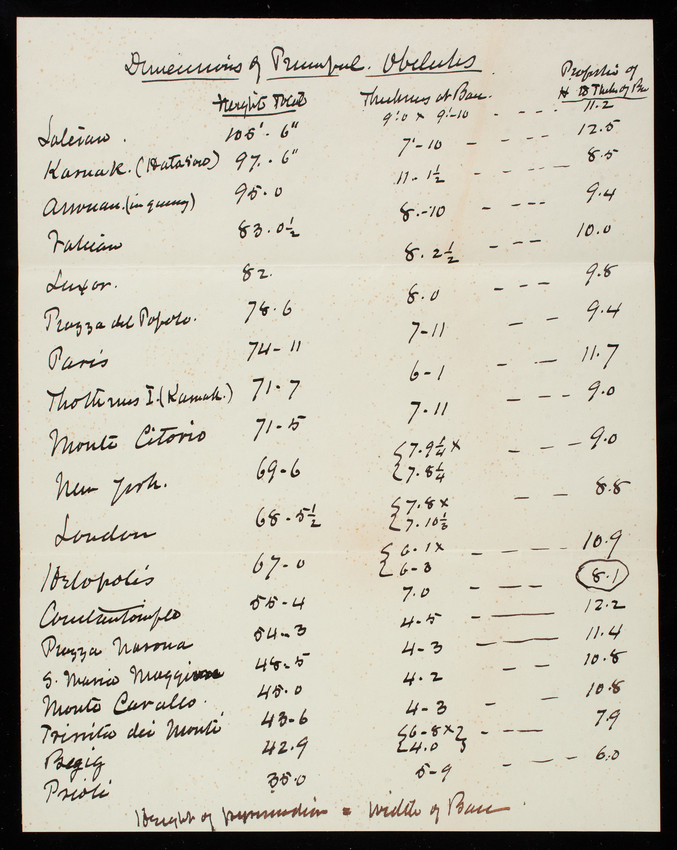 Dimensions of Principal Obelisks
Height Total Thickness at Base. Proportion of H to Thick. of Base
Lateran. 105'. 6" 9'.0 x 9'-10 11.2
Karnak. (Hatasoo) 97. 6" 7'-10 12.5
Assouan. (in quarry) 95.0 11-1½ 8.5
Vatican 83.0½ 8.-10 9.4
Luxor. 82. 8.2½ 10.0
Piazza del Popolo. 78.6 8.0 9.8
Paris 74-11 7-11 9.4
Thothmes I. (Karnak.) 71-7 6-1 11.7
Monte Citorio 71-5 7.11 9.0
New York. 69-6 {7.9¼ x 7.8¼ 9.0
London 68-5½ {7.8 x 7.10⅓ 8.8
Heliopolis 67-0 {6-1x 6-3 10.9
Constantinople 55-4 7.0 8.1
Piazza Navona 54-3 4-5 12.2
S. Maria Maggiore 48-5 4-3 11.4
Monte Cavallo. 45.0 4.2 10.8
Trinita dei Monti 43-6 4-3 10.8
Begig 42.9 {6-8x 4.0} 7.9
Prioli 35.0 5-9 6.0
Height of pyramidion = Width of Base